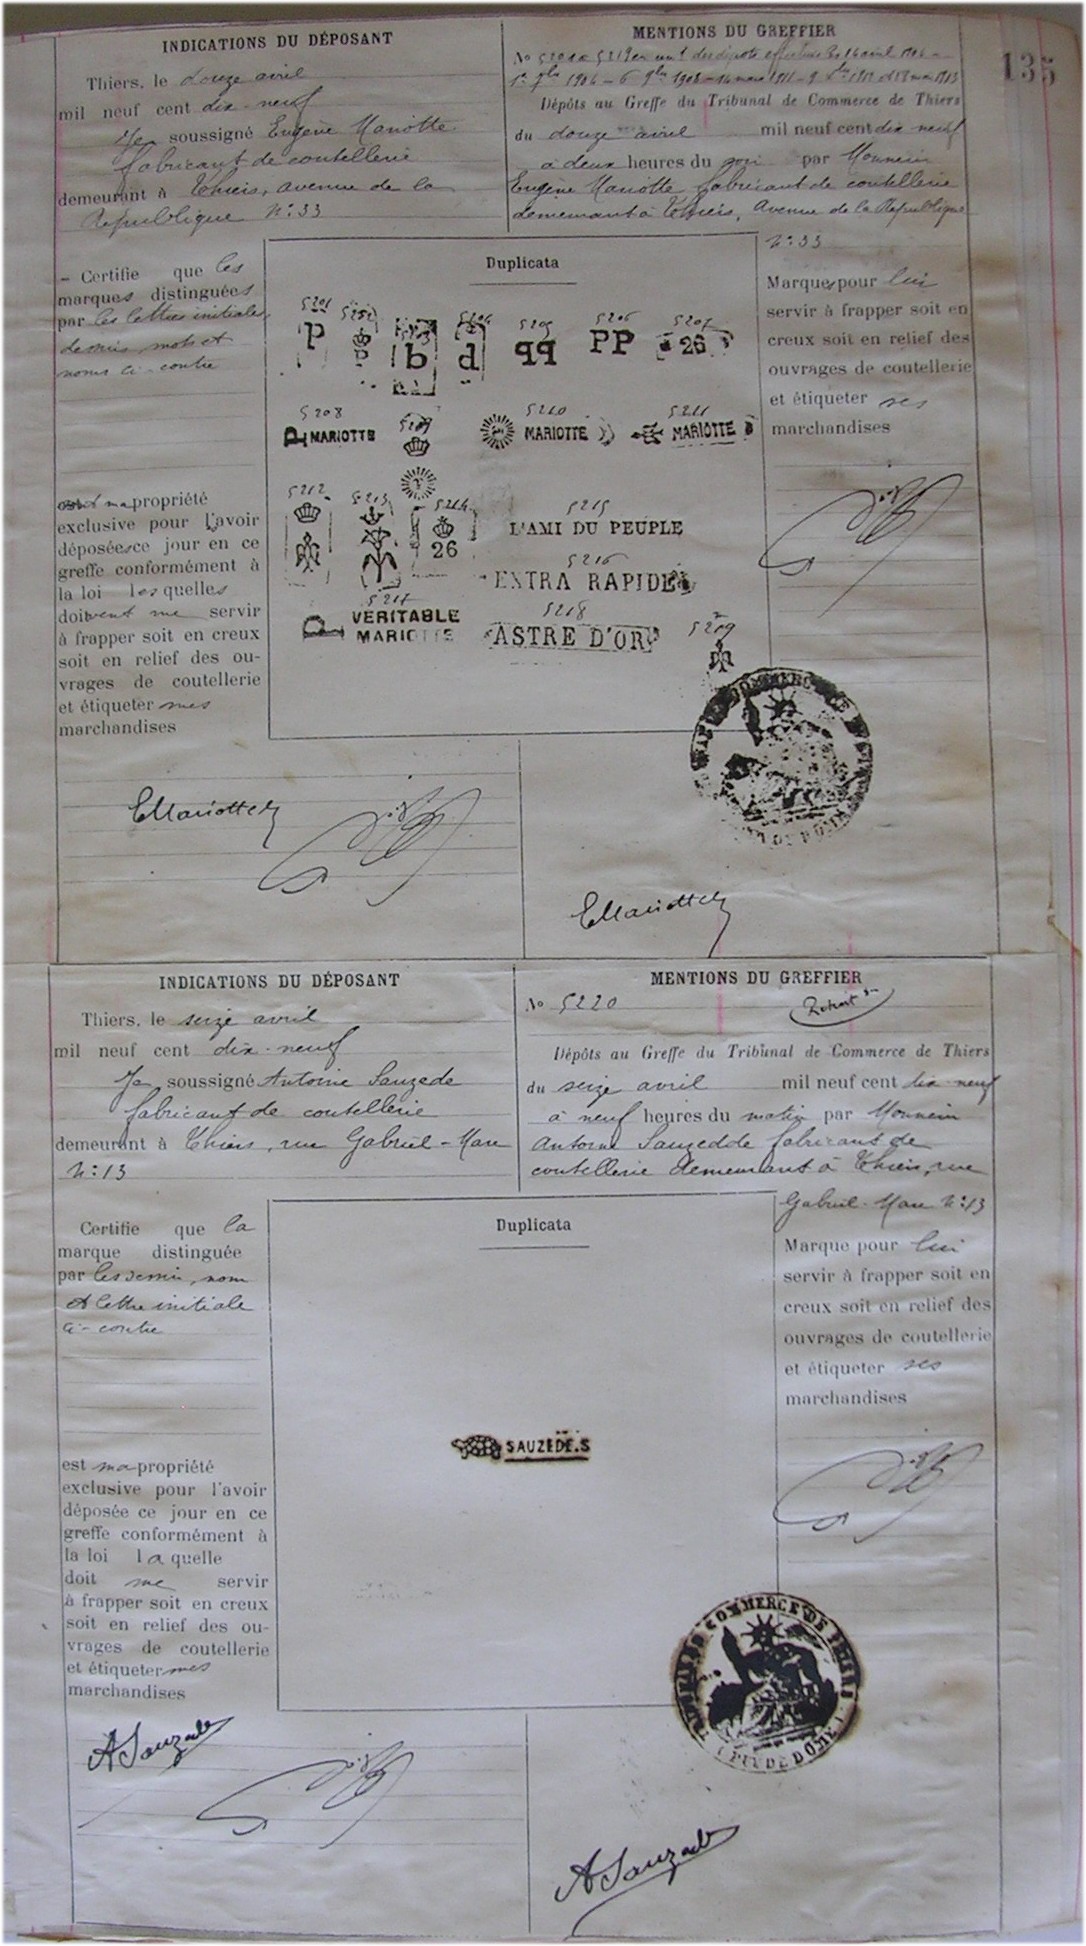 135
INDICATIONS DU DÉPOSANT
Thiers, le douze avril
mil neuf cent dix-neuf
Je soussigné Eugène Mariotte
fabricant de coutellerie
demeurant à Thiers, avenue de la
République N:33
MENTIONS DU GREFFIER
No 5201 à 5219 en un des dépots effectués les 14 avril 1904 -
Dépôts au Greffe du Tribunal de Commerce de Thiers
du douze avril mil neuf cent dix neuf
à deux heures du soir par Monsieur
Eugène Mariotte fabricant de coutellerie
demeurant à Thiers, Avenue de la République
N:33
- Certifie que les
marques distinguées
par les lettres initiales
dessins, mots et
noms ci-contre
sont ma propriété
exclusive pour l'avoir
déposées ce jour en ce
greffe conformément à
la loi lesquelles
doivent me servir
à frapper soit en creux
soit en relief des ou-
vrages de coutellerie
et étiqueter mes
marchandises
Duplicata
5201 5202 5203 5204 5205 5206 5207
P P b d qq PP 26
5208 5209 5210 5211
P MARIOTTE MARIOTTE MARIOTTE
5212 5213 5214 5215
26 L'AMI DU PEUPLE
5216
EXTRA RAPIDE
5217 5218
P VERITABLE MARIOTTE ASTRE D'OR
5209
Marques pour lui
servir à frapper soit en
creux soit en relief des
ouvrages de coutellerie
et étiqueter ses
marchandises
EMariotte
EMariotte
INDICATIONS DU DÉPOSANT
Thiers, le seize avril
mil neuf cent dix-neuf
Je soussigné Antoine Sauzede
fabricant de coutellerie
demeurant à Thiers, rue Gabriel-Marc
N:13
MENTIONS DU GREFFIER
No 5220
Dépôts au Greffe du Tribunal de Commerce de Thiers
du seize avril mil neuf cent dix-neuf
à neuf heures du matin par Monsieur
Antoine Sauzedde fabricant de
coutellerie demeurant à Thiers, rue
Gabriel-Marc N:13
Certifie que la
marque distinguée
par les dessin, nom
et lettre initiale
ci-contre
est ma propriété
exclusive pour l'avoir
déposée ce jour en ce
greffe conformément à
la loi laquelle
doit me servir
à frapper soit en creux
soit en relief des ou-
vrages de coutellerie
et étiqueter mes
marchandises
Duplicata
SAUZEDE.S
Marque pour lui
servir à frapper soit en
creux soit en relief des
ouvrages de coutellerie
et étiqueter ses
marchandises
TRIBUNAL DE COMMERCE DE THIERS
(PUY DE DOME)
A Sauzede
A Sauzede